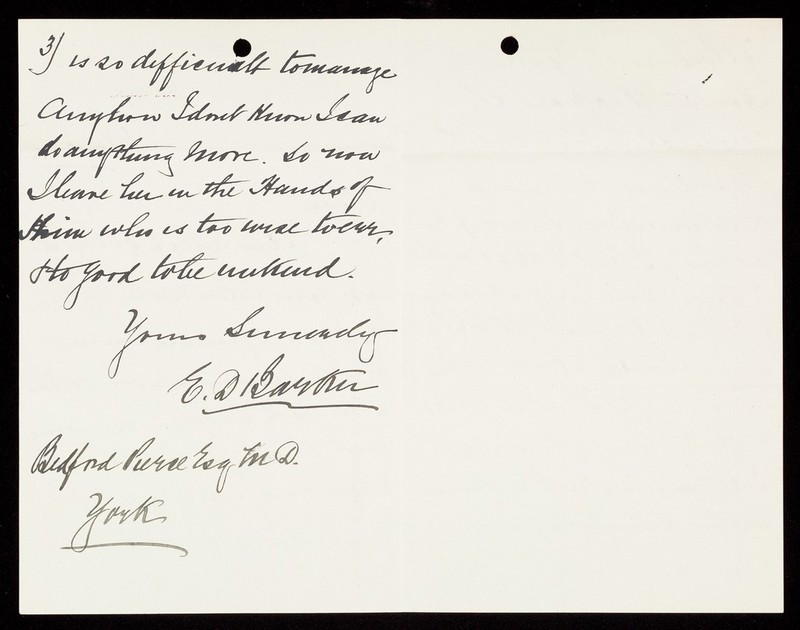 3) is so difficult to manage
Anyhow I dont Know I can
do anything More. So now
I leave her in the Hands of
Him who is too wise to err,
& to good to be unkind.
Yours Sincerely
E. D Barker
Bedford Pierce Esq M D.
York